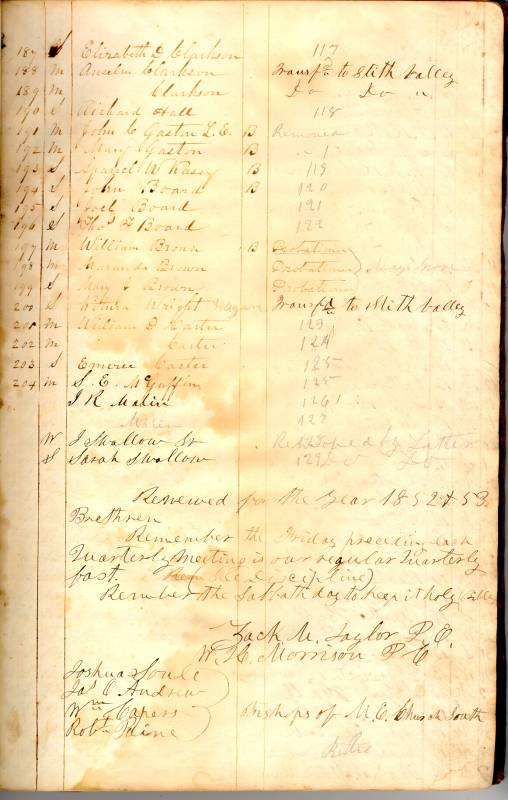 187 S Elizabeth D Clarkson 117
188 m Anselm Clarkson Transfd to Stith Valley
189 m Clarkson Do Do
190 S Richard Hall 118
191 m John C Gaston L.E. B Removed
192 m Mary Gaston B
193 S W Kasey B 119
194 S John Board B 120
195 S Joel Board 121
196 S Thos F Board 122
197 m William Brown B Probationer
198 m Maranda Brown Probationer
199 S Mary E Brown Probationer
200 S Wright Transfd to Stith Valley
201 m William D Carter 123
202 m Carter 124
203 S Carter 125
204 m S. E. McGuffin 125
J. R. Malin 126
Malin 127
W J Swallow Sr by Letter
S Sarah Swallow 129 Do Do
Renewed for the Year 1852 & 53
Brethren
Remember the Friday preceding each
Quarterly Meeting is our regular Quarterly
fast. Discipline)
Rember the Sabbath day to keep it holy
Zack M. Taylor P.E.
W. H. Morrison P C
Joshua Soule
Jas O Andrew
Wm Capers
Robt Paine
Bishops of M. E. Church South